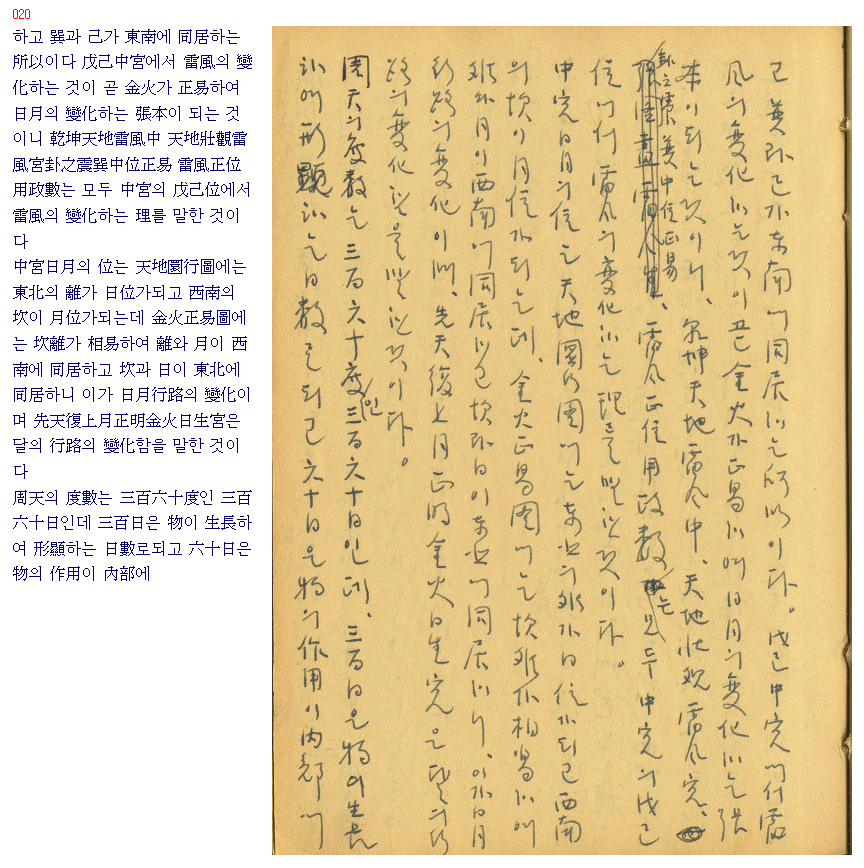 020
하고 巽과 己가 東南에 同居하는
所以이다 戊己中宮에서 雷風의 變
化하는 것이 곧 金火가 正易하여
日月의 變化하는 張本이 되는 것
이니 乾坤天地雷風中 天地壯觀雷
風宮卦之震巽中位正易 雷風正位
用政數는 모두 中宮의 戊己位에서
雷風의 變化하는 理를 말한 것이
다
中宮日月의 位는 天地圜行圖에는
東北의 離가 日位가되고 西南의
坎이 月位가되는데 金火正易圖에
는 坎離가 相易하여 離와 月이 西
南에 同居하고 坎과 日이 東北에
同居하니 이가 日月行路의 變化이
며 先天復上月正明金火日生宮은
달의 行路의 變化함을 말한 것이
다
周天의 度數는 三百六十度인 三百
六十日인데 三百日은 物이 生長하
여 形顯하는 日數로되고 六十日은
物의 作用이 內部에
고 巽과 己가 東南에 同居하는 所以이다。戊己中宮에서 雷
風의 變化하는 것이 곧 金火가 正易하여 日月의 變化하는 張
本이 되는 것이니、乾坤天地雷風中、天地壯觀雷風宮、
卦之震巽中位正易 雷風正位用政數는 모두 中宮의 戊己
位에서 雷風의 變化하는 理를 말한 것이다。
中宮日月의 位는 天地圜行圖에는 東北의 離가 日位가되고 西南
의 坎이 月位가되는데、金火正易圖에는 坎離가 相易하여
離와 月이 西南에 同居하고 坎과 日이 東北에 同居하니、이가 日月
行路의 變化이며、先天復上月正明金火日生宮은 달의 行
路의 變化함을 말한 것이다。
周天의 度數는 三百六十度인 三百六十日인데、三百日은 物이 生長
하여 形顯하는 日數로되고 六十日은 物의 作用이 內部에